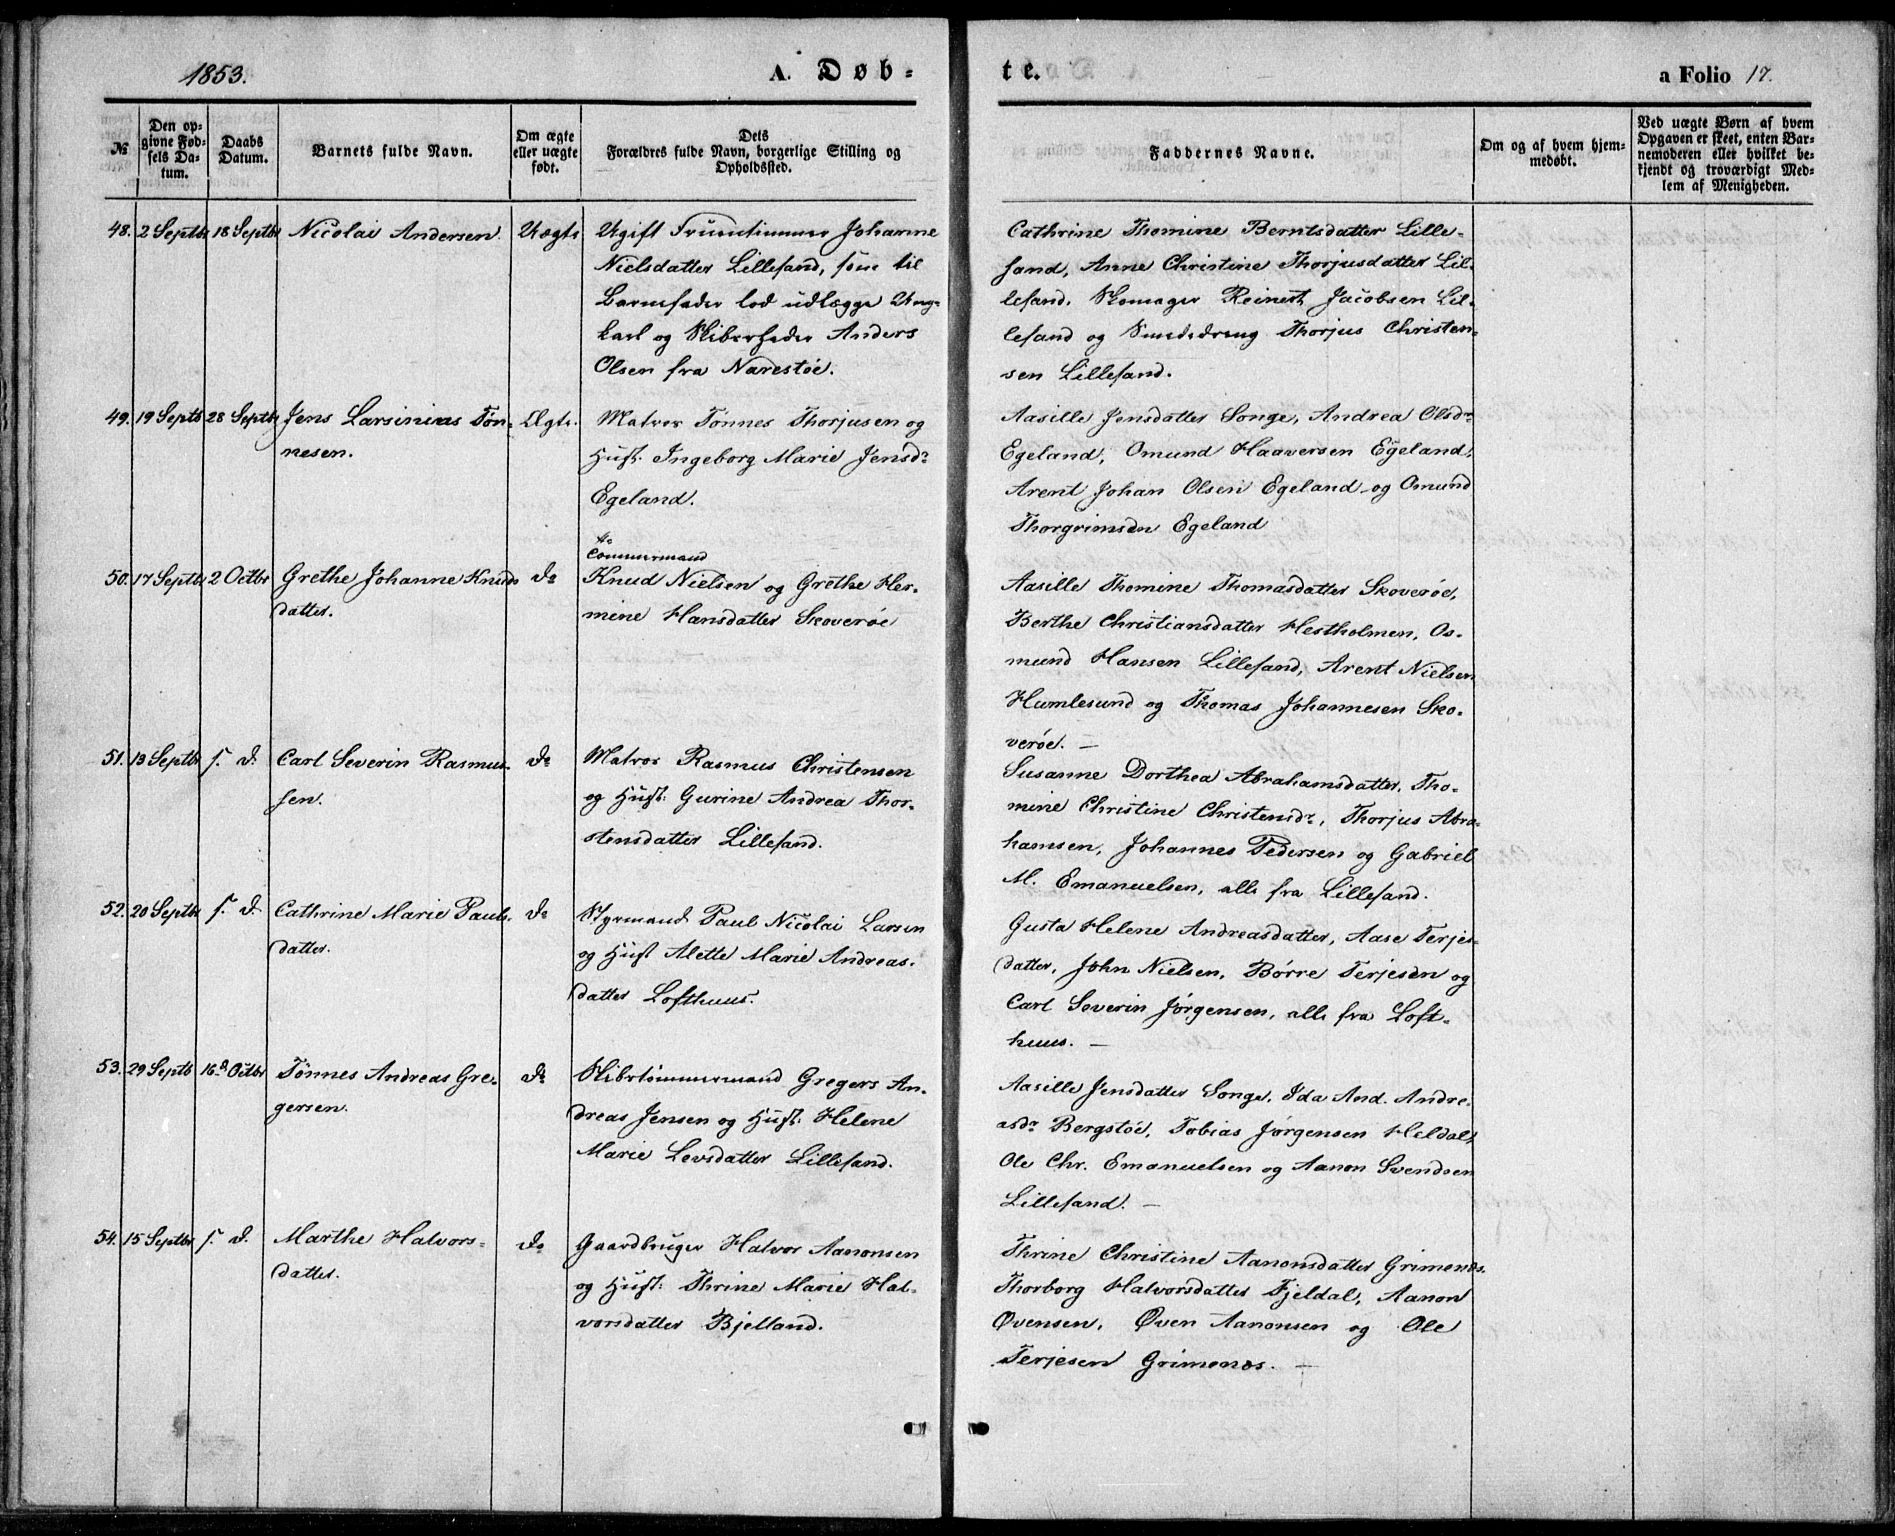 1853.
A. Døb-
te.
a Folio 17.
№
Den op-
givne Fød-
sels Da-
tum.
Daabs
Datum.
Barnets fulde Navn.
Om ægte
eller uægte
født.
Dets
Forældres fulde Navn, borgerlige Stilling og
Opholdssted.
Faddernes Navne.
Om og af hvem hjem-
medøbt.
Ved uægte Børn af hvem
Opgaven er skeet, enten Bar-
nemoderen eller hvilket be-
kjendt og troværdigt Med-
lem af Menigheden.
48. 2 Septbr 18 Septbr Nicolai Andersen. Uægte
Ugift Fruentimmer Johanne
Nielsdatter Lillesand, som til
Barnefader lod udlægge Ung-
karl og Skibsreder Anders
Olsen fra Narestøe.
Cathrine Thomine Berntsdatter Lille-
sand, Anne Christine Thorjusdatter Lil-
lesand, Skomager Reinert Jacobsen Lil-
lesand og Smededreng Thorjus Christen-
sen Lillesand.
49. 19 Septb 28 Septbr Jens Larsinius Tøn- Ægte.
nesen.
Matros Tønnes Thorjusen og
Hust. Ingeborg Marie Jensdr
Egeland.
Aasille Jensdatter Songe, Andrea Olsdr
Egeland, Omund Haaversen Egeland,
Arent Johan Olsen Egeland og Omund
Thorgrimsen Egeland
50. 17 Septbr 2 Octbr Grethe Johanne Knuds do
datter.
Tömmermand
Knud Nielsen og Grethe Her-
mine Hansdatter Skoverøe
Aasille Thomine Thomasdatter Skoverøe,
Berthe Christiansdatter Hestholmen, Os-
mund Hansen Lillesand, Arent Nielsen
Humlesund og Thomas Johannesen Sko-
verøe. —
51. 13 Septbr s. D. Carl Severin Rasmus- do
sen.
Matros Rasmus Christensen
og Hust: Gurine Andrea Thor-
stensdatter Lillesand.
Susanne Dorthea Abrahamsdatter, Tho-
mine Christine Christensdr, Thorjus Abra-
hamsen, Johannes Pedersen og Gabriel
M. Emanuelsen, alle fra Lillesand.
52. 20 Septbr s. D. Cathrine Marie Pauls- do
datter.
Styrmand Paul Nicolai Larsen
og Hust Alette Marie Andreas-
datter Lofthuus.
Gusta Helene Andreasdatter, Aase Terjes-
datter, John Nielsen, Børre Terjesen og
Carl Severin Jørgensen, alle fra Loft-
huus. —
53. 29 Septb 16 d Octbr Tønnes Andreas Gre- do
gersen.
Skibstömmermand Gregers An-
dreas Jensen og Hust: Helene
Marie Levsdatter Lillesand.
Aasille Jensdatter Songe, Ida And. Andre-
asdr Bergstøe, Tobias Jørgensen Heldal,
Ole Chr. Emanuelsen og Aanon Svendsen
Lillesand. —
54. 15 Septbr s. D. Marthe Halvors- do
datter.
Gaardbruger Halvor Aanonsen
og Hust: Thrine Marie Hal-
vorsdatter Bjelland.
Thrine Christine Aanonsdatter Grimenæs,
Thorborg Halvorsdatter Fjeldal, Aanon
Øvensen, Øven Aanonsen og Ole
Terjesen Grimenæs. —